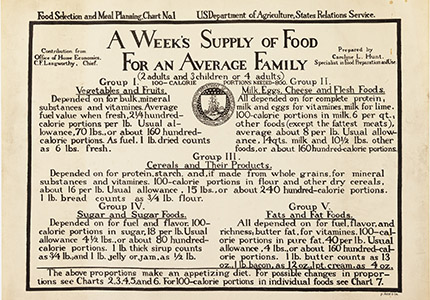 Food Selection and Meal Planning, Chart No.1 U.S. Department of Agriculture, States Relations Service.
A WEEK'S SUPPLY OF FOOD
FOR AN AVERAGE FAMILY
Contribution from
Office of Home Economics.
C.F. Langworthy, Chief.
Prepared by
Caroline L. Hunt.
Specialist in Food Preparation and Use
(2 adults and 3 children or 4 adults)
100-CALORIE PORTIONS NEEDED-800.
Group I.
Vegetables and Fruits.
Depended on for bulk, mineral
substances and vitamins. Average
fuel value when fresh, 2¼ hundred-
calorie portions per lb. Usual al-
lowance, 70 lbs., or about 160 hundred-
calorie portions. As fuel, 1 lb. dried counts
as 6 lbs. fresh.
Group II.
Milk, Eggs, Cheese and Flesh Foods.
All depended on for complete protein,
milk and eggs for vitamins, milk for lime.
100-calorie portions in milk, 6 per qt.,
other foods (except the fattest meats),
average about 8 per lb. Usual allow-
ance, 14 qts. milk and 10½ lbs. other
foods, or about 160 hundred-calorie portions.
Group III.
Cereals and Their Products.
Depended on for protein, starch, and, if made from whole grains, for mineral
substances and vitamins. 100-calorie portions in flour and other dry cereals,
about 16 per lb. Usual allowance, 15 lbs., or about 240 hundred-calorie portions.
1 lb. bread counts as ¾ lb. flour.
Group IV.
Sugar and Sugar Foods.
Depended on for fuel and flavor. 100-
calorie portions in sugar, 18 per lb. Usual
allowance 4½ lbs., or about 80 hundred-
calorie portions. 1 lb. thick sirup counts
as ¾ lb., and 1 lb. jelly or jam, as ½ lb.
Group V.
Fats and Fat Foods.
All depended on for fuel, flavor, and
richness; butter fat, for vitamins. 100-cal-
orie portions in pure fat, 40 per lb. Usual
allowance, 4 lbs., or about 160 hundred-calo-
rie portions. 1 lb. butter counts as 13
oz., 1 lb. bacon, as 12 oz., 1 pt. cream, as 4 oz.
The above proportions make an appetizing diet. For possible changes in propor-
tions see Charts 2,3,4,5,6. For 100-calorie portions in individual foods see Chart 7.